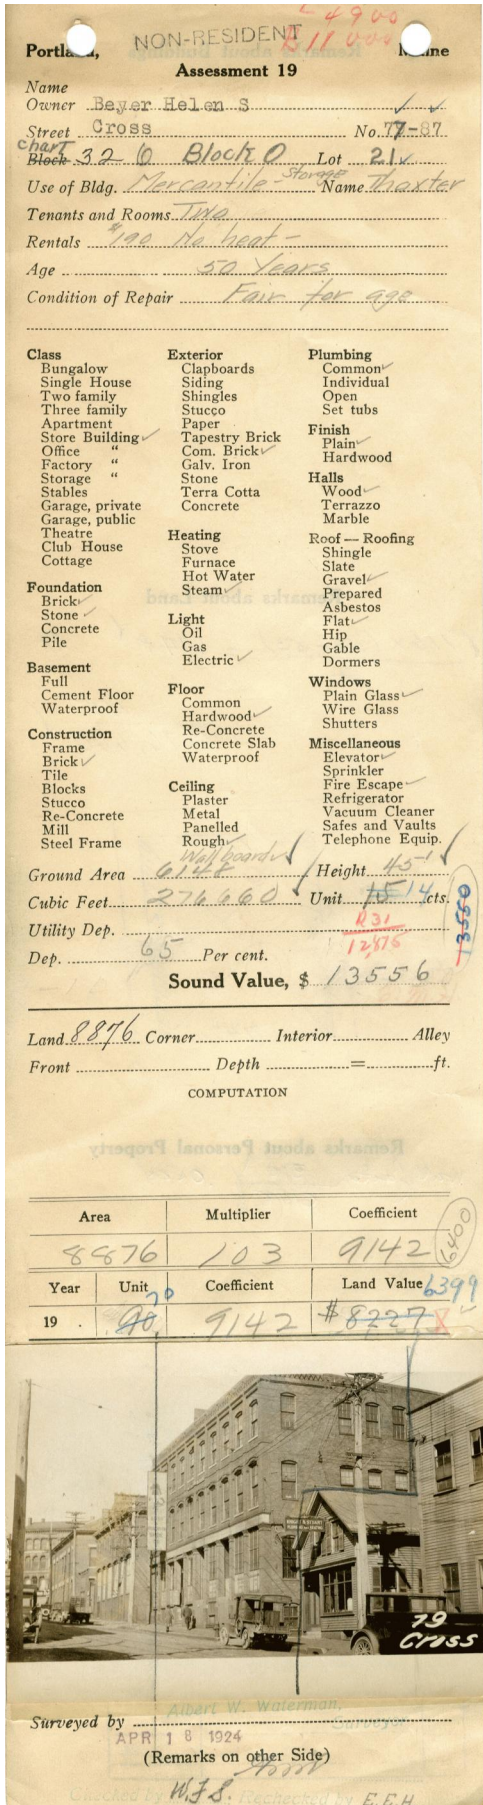 NON-RESIDENT
L 4900
B 11000
Portland, Maine
Assessment 19
Name
Owner Beyer Helen S
Street Cross No. 77-87
chart
Block 32 6 Block O Lot 21
Use of Bldg. Mercantile - Storage Name Thaxter
Tenants and Rooms Two
Rentals $190 No heat -
Age 50 Years
Condition of Repair Fair for age
Class
Bungalow
Single House
Two family
Three family
Apartment
Store Building ✓
Office "
Factory "
Storage "
Stables
Garage, private
Garage, public
Theatre
Club House
Cottage
Foundation
Brick ✓
Stone ✓
Concrete
Pile
Basement
Full
Cement Floor
Waterproof
Construction
Frame
Brick ✓
Tile
Blocks
Stucco
Re-Concrete
Mill
Steel Frame
Exterior
Clapboards
Siding
Shingles
Stucco
Paper
Tapestry Brick
Com. Brick ✓
Galv. Iron
Stone
Terra Cotta
Concrete
Heating
Stove
Furnace
Hot Water
Steam ✓
Light
Oil
Gas
Electric ✓
Floor
Common
Hardwood ✓
Re-Concrete
Concrete Slab
Waterproof
Ceiling
Plaster
Metal
Panelled
Rough ✓
Wallboard ✓
Plumbing
Common ✓
Individual
Open
Set tubs
Finish
Plain ✓
Hardwood
Halls
Wood ✓
Terrazzo
Marble
Roof — Roofing
Shingle
Slate
Gravel ✓
Prepared
Asbestos
Flat ✓
Hip
Gable
Dormers
Windows
Plain Glass ✓
Wire Glass
Shutters
Miscellaneous
Elevator ✓
Sprinkler
Fire Escape ✓
Refrigerator
Vacuum Cleaner
Safes and Vaults
Telephone Equip.
Ground Area 6148 Height 45'
Cubic Feet 276660 Unit 15 14 cts.
13550
Utility Dep. R31
12875
Dep. 65 Per cent.
Sound Value, $ 13556
Land 8876 Corner Interior Alley
Front Depth = ft.
COMPUTATION
Remarks about Personal Property
Area Multiplier Coefficient
8876 103 9142 6400
Year Unit Coefficient Land Value 6399
19 . 90 70 9142 $8227
79
Cross
Albert W. Waterman,
Surveyed by Surveyor
APR 18 1924
(Remarks on other Side)
Checked by W.F.S. Rechecked by E.E.H.